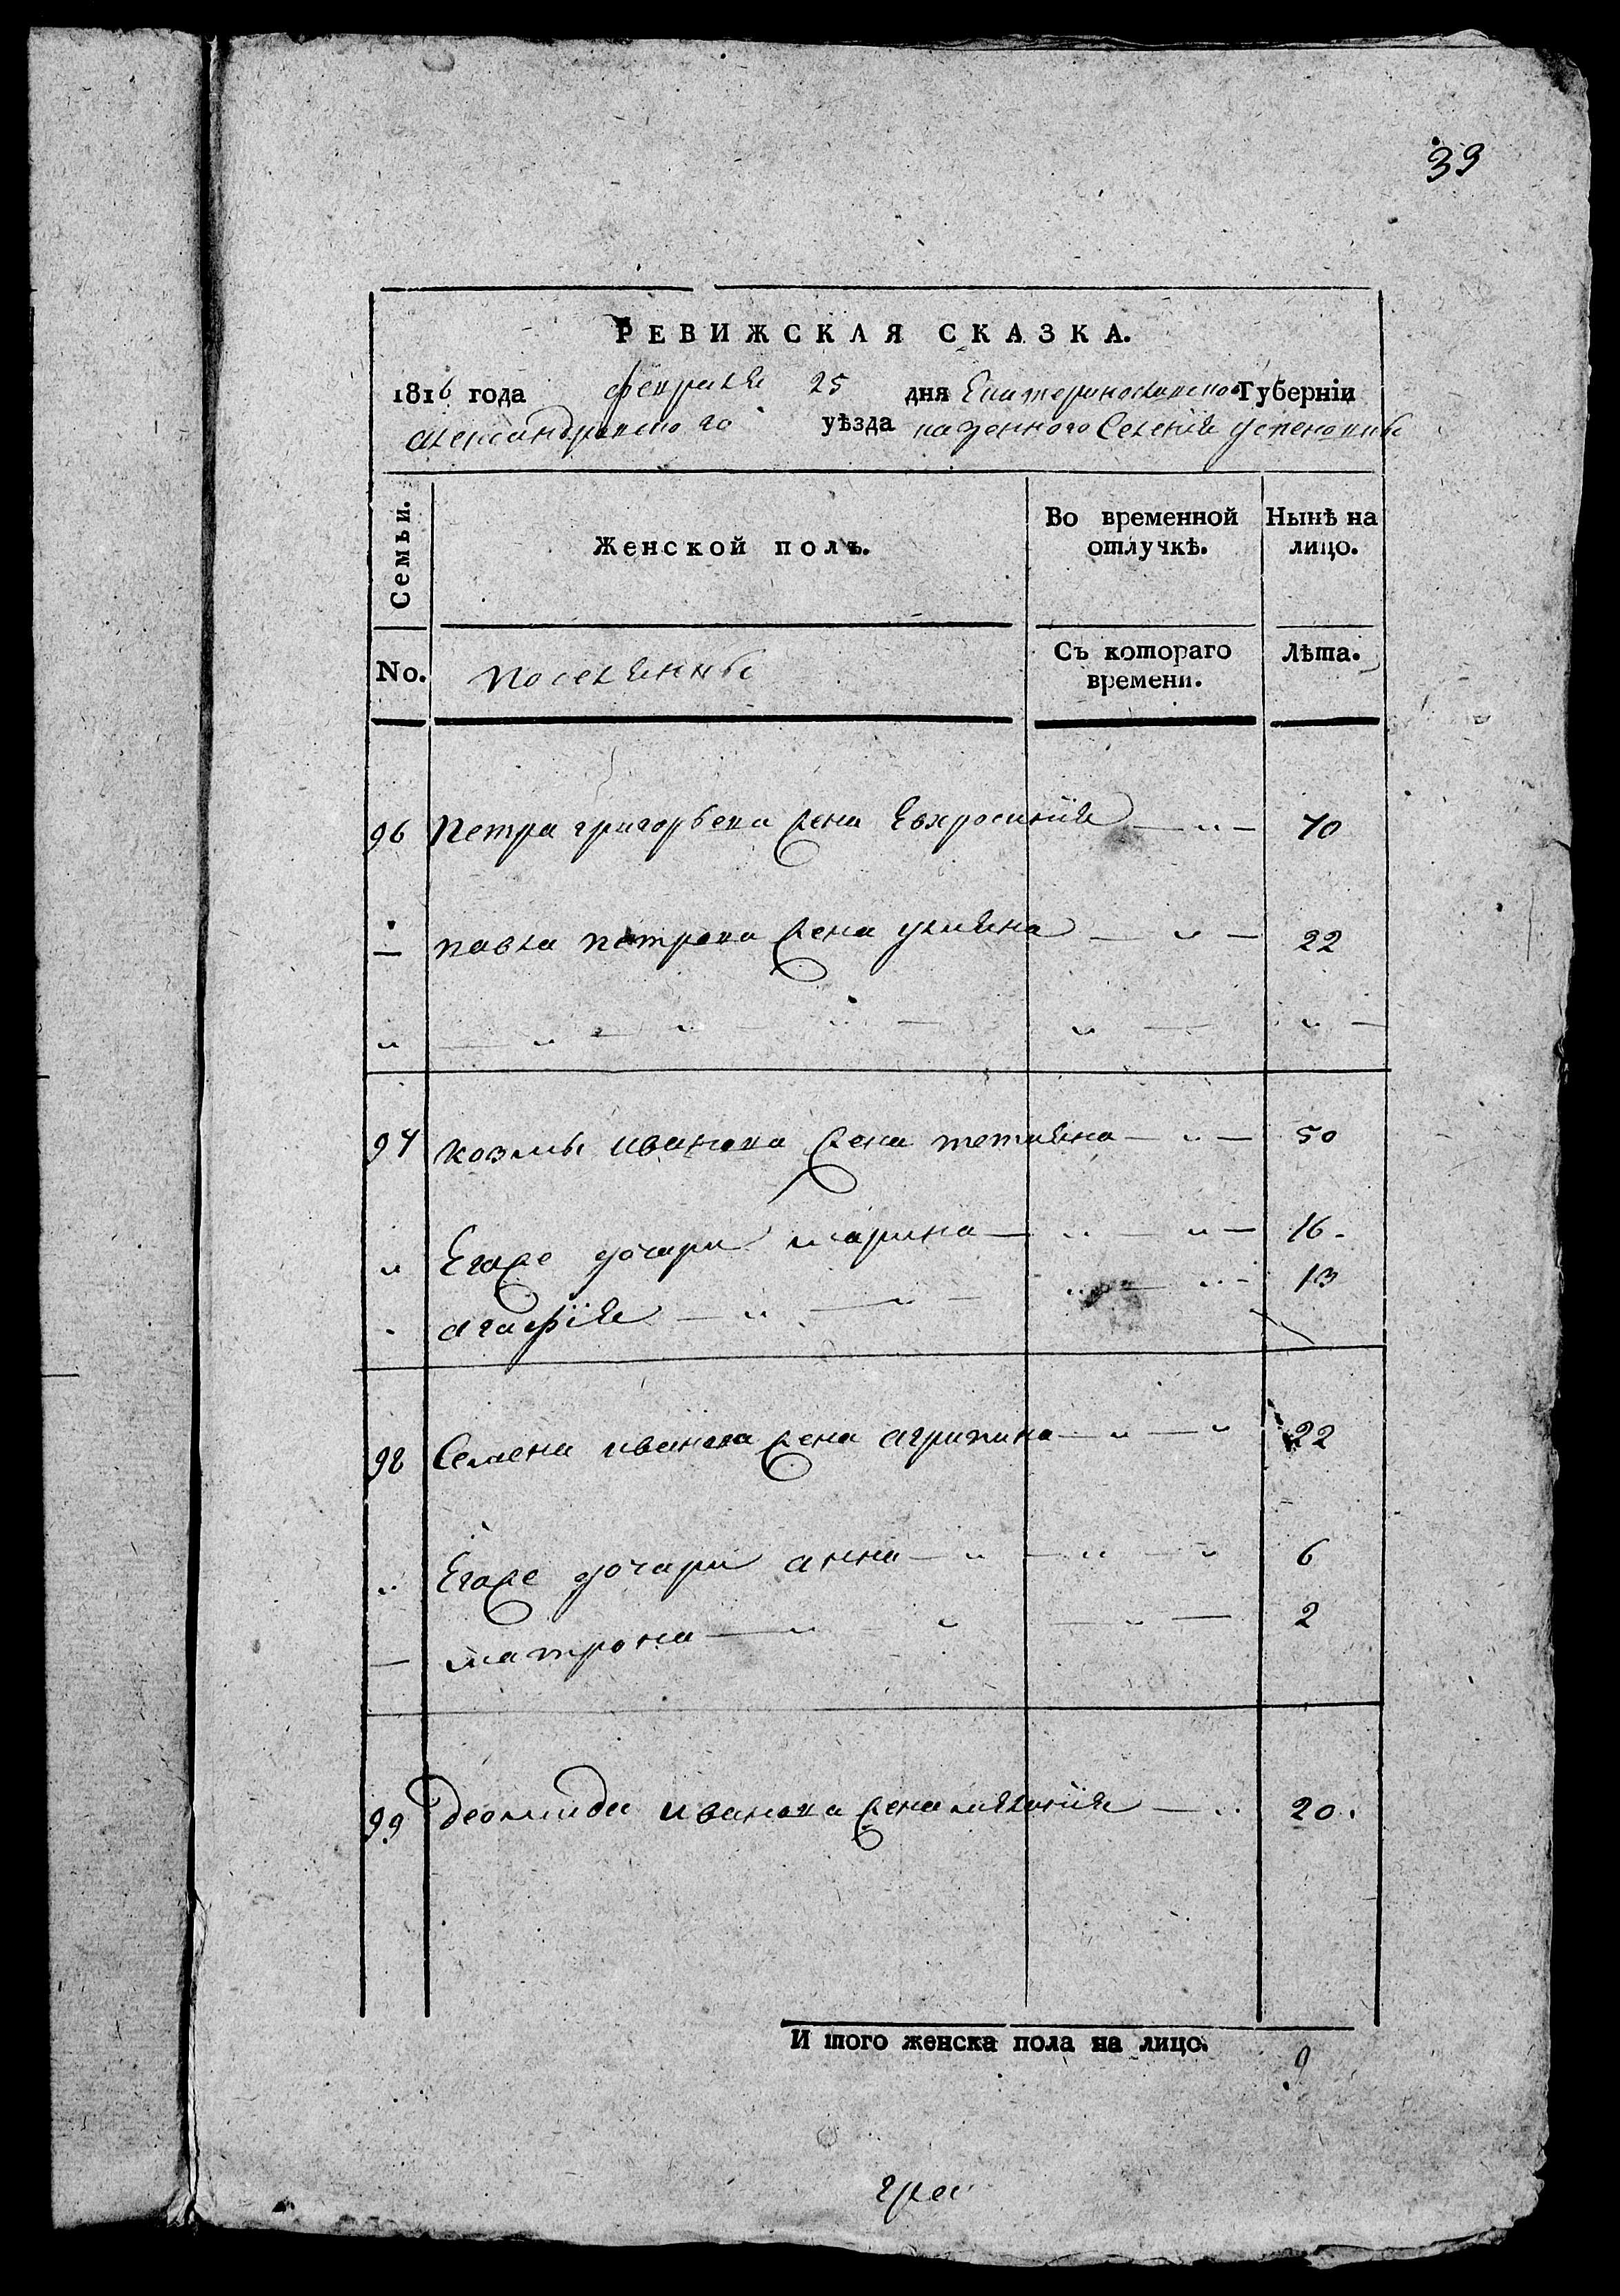 39
РЕВИЖСКАЯ СКАЗКА.
1816 года февраля 25 дня Екатеринославско Губерніи
александровского уѣзда казенного Селенія успеновки
Семьи. Женской полъ. Во временной отлучкѣ. Нынѣ на лицо.
No. поселянны Съ котораго времени. Лѣта.
96 Петра григорьева жена Евхросинія — „ — 70
— павла петрова жена улияна — „ — 22
„ — „ — „ — „ — „ — „ —
97 козмы иванова жена тетияна — „ — 50
„ Егоже дочери марина — „ — „ — 16.
„ агафія — „ — „ — „ — „ — 13
98 Семена иванова жена агрипина — „ — „ 22
„ Егоже дочери анна — „ — „ — „ 6
— матрона — „ — „ — „ — 2
99 деомида иванова жена меланія — „ 20.
И того женска пола на лицо. 9